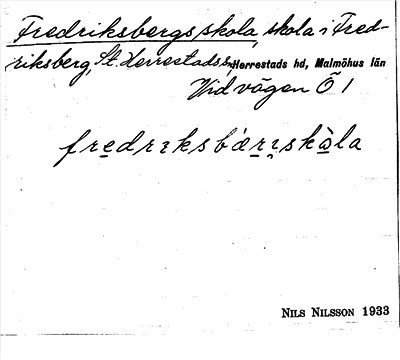 Fredriksbergs skola, skola i Fred-
riksberg, St. Herrestads s, Herrestads hd, Malmöhus län
Vid vägen Ö 1
fredrɪksbæ̀rɪ̯skòla
NILS NILSSON 1933